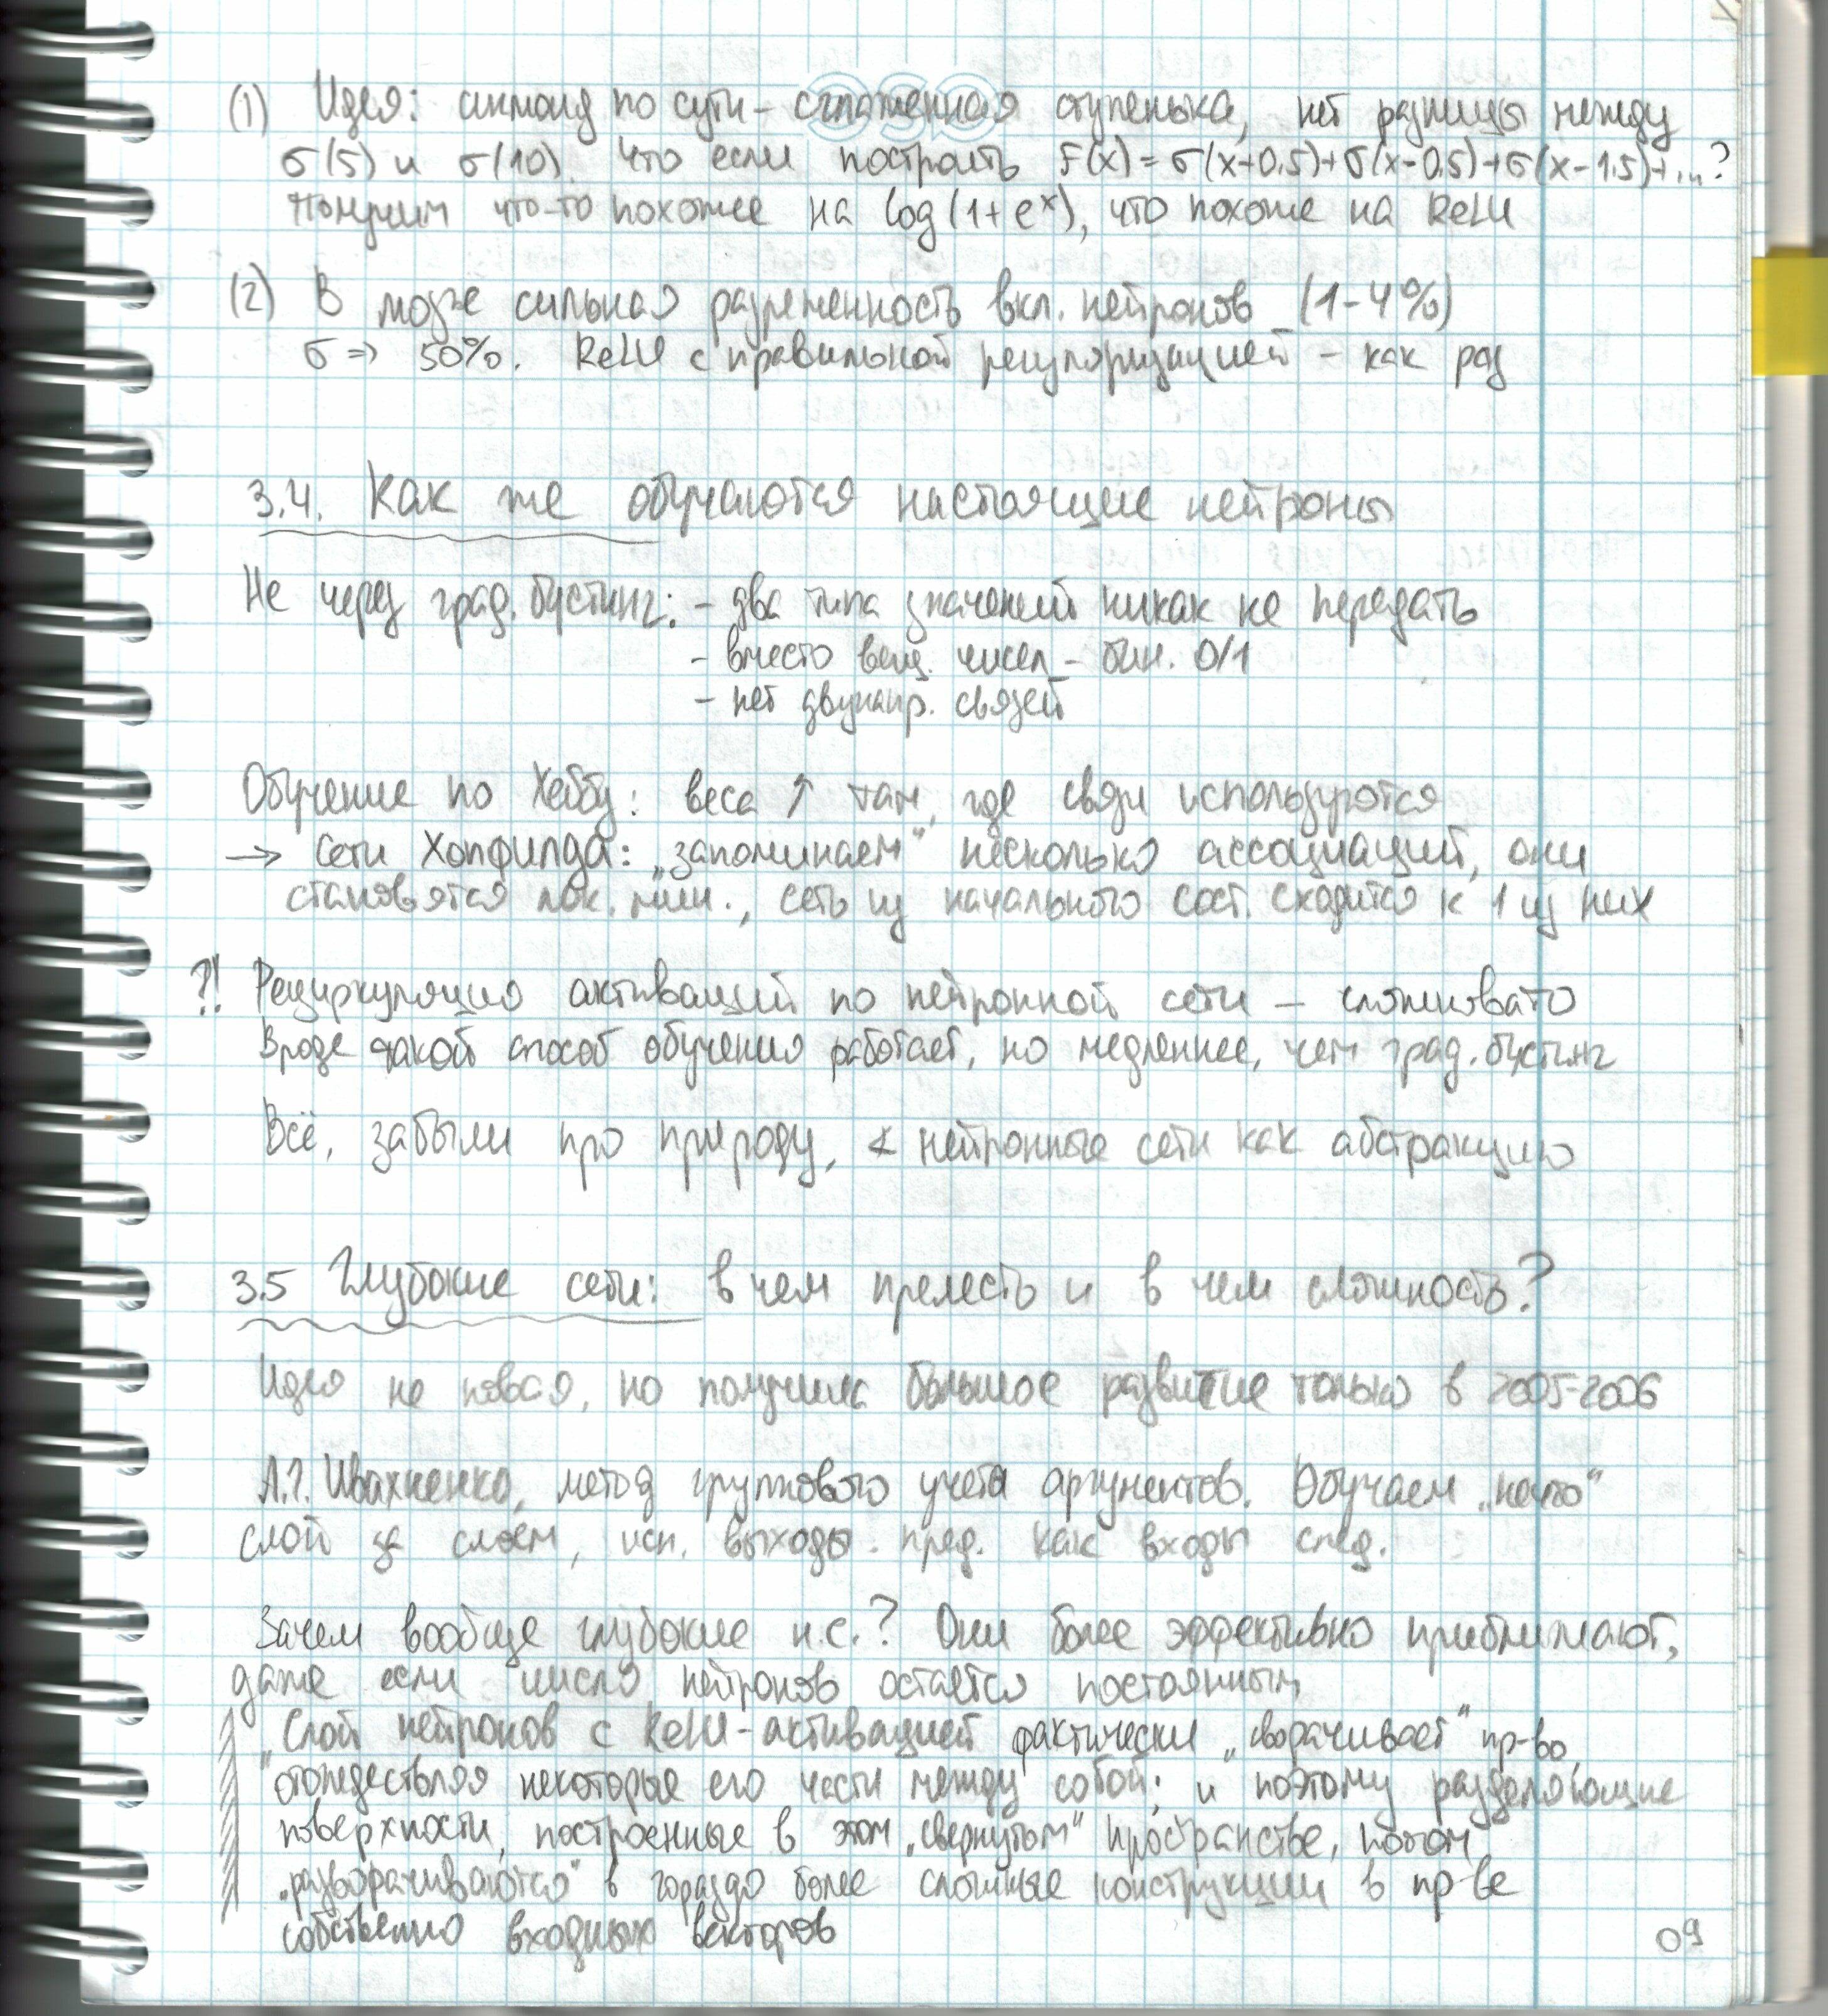 (1) Идея: сигмоид по сути - сглаженная ступенька, нет разницы между
σ(5) и σ(10). Что если построить F(x) = σ(x+0.5)+σ(x-0.5)+σ(x-1.5)+...?
Получим что-то похожее на log(1+e^x), что похоже на ReLU
(2) В мозге сильная разреженность вкл. нейронов (1-4%)
σ => 50%. ReLU с правильной регуляризацией - как раз
3.4. Как же обучаются настоящие нейроны
Не через град. бустинг: - два типа значений никак не передать
- вместо вещ. чисел - бин. 0/1
- нет двунапр. связей
Обучение по Хеббу: веса ↑ там, где связи используются
→ Сети Хопфилда: „запоминаем" несколько ассоциаций, они
становятся лок. мин., сеть из начального сост. сходится к 1 из них
?! Рециркуляция активаций по нейронной сети - сложновато
Вроде такой способ обучения работает, но медленнее, чем град. бустинг
Всё, забыли про природу, < нейронные сети как абстракцию
3.5 Глубокие сети: в чем прелесть и в чем сложность?
Идея не новая, но получила большое развитие только в 2005-2006
А.Г. Ивахненко, метод группового учета аргументов. Обучаем „нечто"
слой за слоем, исп. выходы пред. как входы след.
Зачем вообще глубокие н.с.? Они более эффективно приближают,
даже если число нейронов остается постоянным
"Слой нейронов с ReLU-активацией фактически „сворачивает" пр-во,
отождествляя некоторые его части между собой; и поэтому разделяющие
поверхности, построенные в этом „свернутом" пространстве, потом
„разворачиваются" в гораздо более сложные конструкции в пр-ве
собственно входных векторов
09